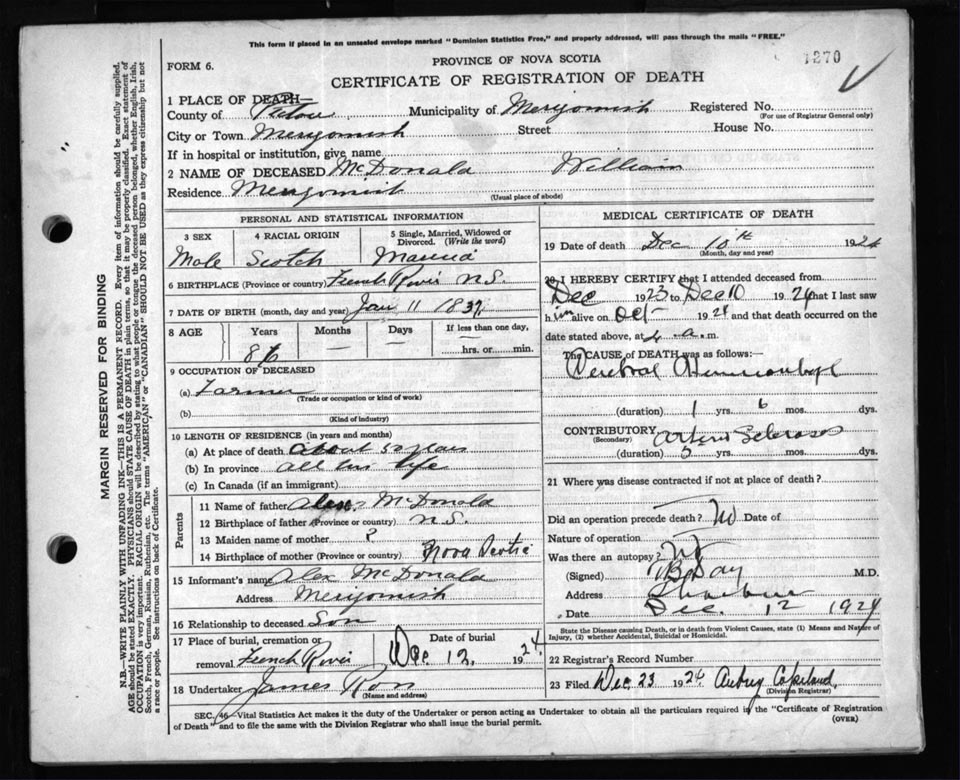 This form if placed in an unsealed envelope marked "Dominion Statistics Free," and properly addressed, will pass through the mails "FREE."
1270
FORM 6.
PROVINCE OF NOVA SCOTIA
CERTIFICATE OF REGISTRATION OF DEATH
1 PLACE OF DEATH—
County of Pictou Municipality of Merigomish Registered No.
(For use of Registrar General only)
City or Town Merigomish Street House No.
If in hospital or institution, give name
2 NAME OF DECEASED McDonald William
Residence Merigomish (Usual place of abode)
PERSONAL AND STATISTICAL INFORMATION
3 SEX 4 RACIAL ORIGIN 5 Single, Married, Widowed or Divorced. (Write the word)
Male Scotch Married
6 BIRTHPLACE (Province or country) French River N.S.
7 DATE OF BIRTH (month, day and year) Jan 11 1837
8 AGE Years Months Days If less than one day,
86 — — hrs. or min.
9 OCCUPATION OF DECEASED
(a) Farmer
(Trade or occupation or kind of work)
(b)
(Kind of industry)
10 LENGTH OF RESIDENCE (in years and months)
(a) At place of death about 50 years
(b) In province all his life
(c) In Canada (if an immigrant)
Parents
11 Name of father Alex McDonald
12 Birthplace of father (Province or country) N.S.
13 Maiden name of mother ?
14 Birthplace of mother (Province or country) Nova Scotia
15 Informant's name Alex McDonald
Address Merigomish
16 Relationship to deceased Son
17 Place of burial, cremation or removal French River Date of burial Dec 12, 1924.
18 Undertaker James Ross
(Name and address)
MEDICAL CERTIFICATE OF DEATH
19 Date of death Dec 10th 1924
(Month, day and year)
20 I HEREBY CERTIFY that I attended deceased from
Dec 1923 to Dec 10 1924 that I last saw
him alive on Oct — 1924 and that death occurred on the
date stated above, at a.m.
The CAUSE OF DEATH was as follows:—
Cerebral Hemmorhage
(duration) 1 yrs. 6 mos. dys.
CONTRIBUTORY Arterio Sclerosis
(Secondary)
(duration) 5 yrs. mos. dys.
21 Where was disease contracted if not at place of death?
Did an operation precede death? No Date of
Nature of operation
Was there an autopsy? No
(Signed) Day M.D.
Address
Date Dec. 12 1924
State the Disease causing Death, or in death from Violent Causes, state (1) Means and Nature of
Injury, (2) whether Accidental, Suicidal or Homicidal.
22 Registrar's Record Number
23 Filed Dec 23 1924 Aubry Copeland
(Division Registrar)
SEC. 46—Vital Statistics Act makes it the duty of the Undertaker or person acting as Undertaker to obtain all the particulars required in the "Certificate of Registration
of Death" and to file the same with the Division Registrar who shall issue the burial permit. (OVER)
MARGIN RESERVED FOR BINDING
N.B.—WRITE PLAINLY WITH UNFADING INK—THIS IS A PERMANENT RECORD. Every item of information should be carefully supplied.
AGE should be stated EXACTLY. PHYSICIANS should STATE CAUSE OF DEATH in plain terms, so that it may be properly classified. Exact statement of
OCCUPATION is very important. RACIAL ORIGIN will be described by stating to what people or tongue the deceased person belonged, whether English, Irish,
Scotch, French, German, Russian, Ruthenian, etc. The terms "AMERICAN" or "CANADIAN" SHOULD NOT BE USED as they express citizenship but not
a race or people. See instructions on back of Certificate.